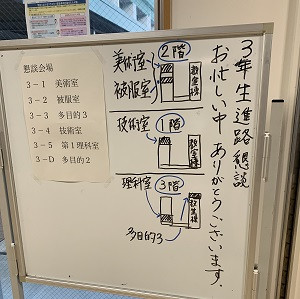 3年生進路懇談
お忙しい中 ありがとうございます。
懇談会場
3－1 美術室
3－2 被服室
3－3 多目的3
3－4 技術室
3－5 第1理科室
3－D 多目的2
美術室
被服室
2階
技術室
1階
理科室
3階
多目的3